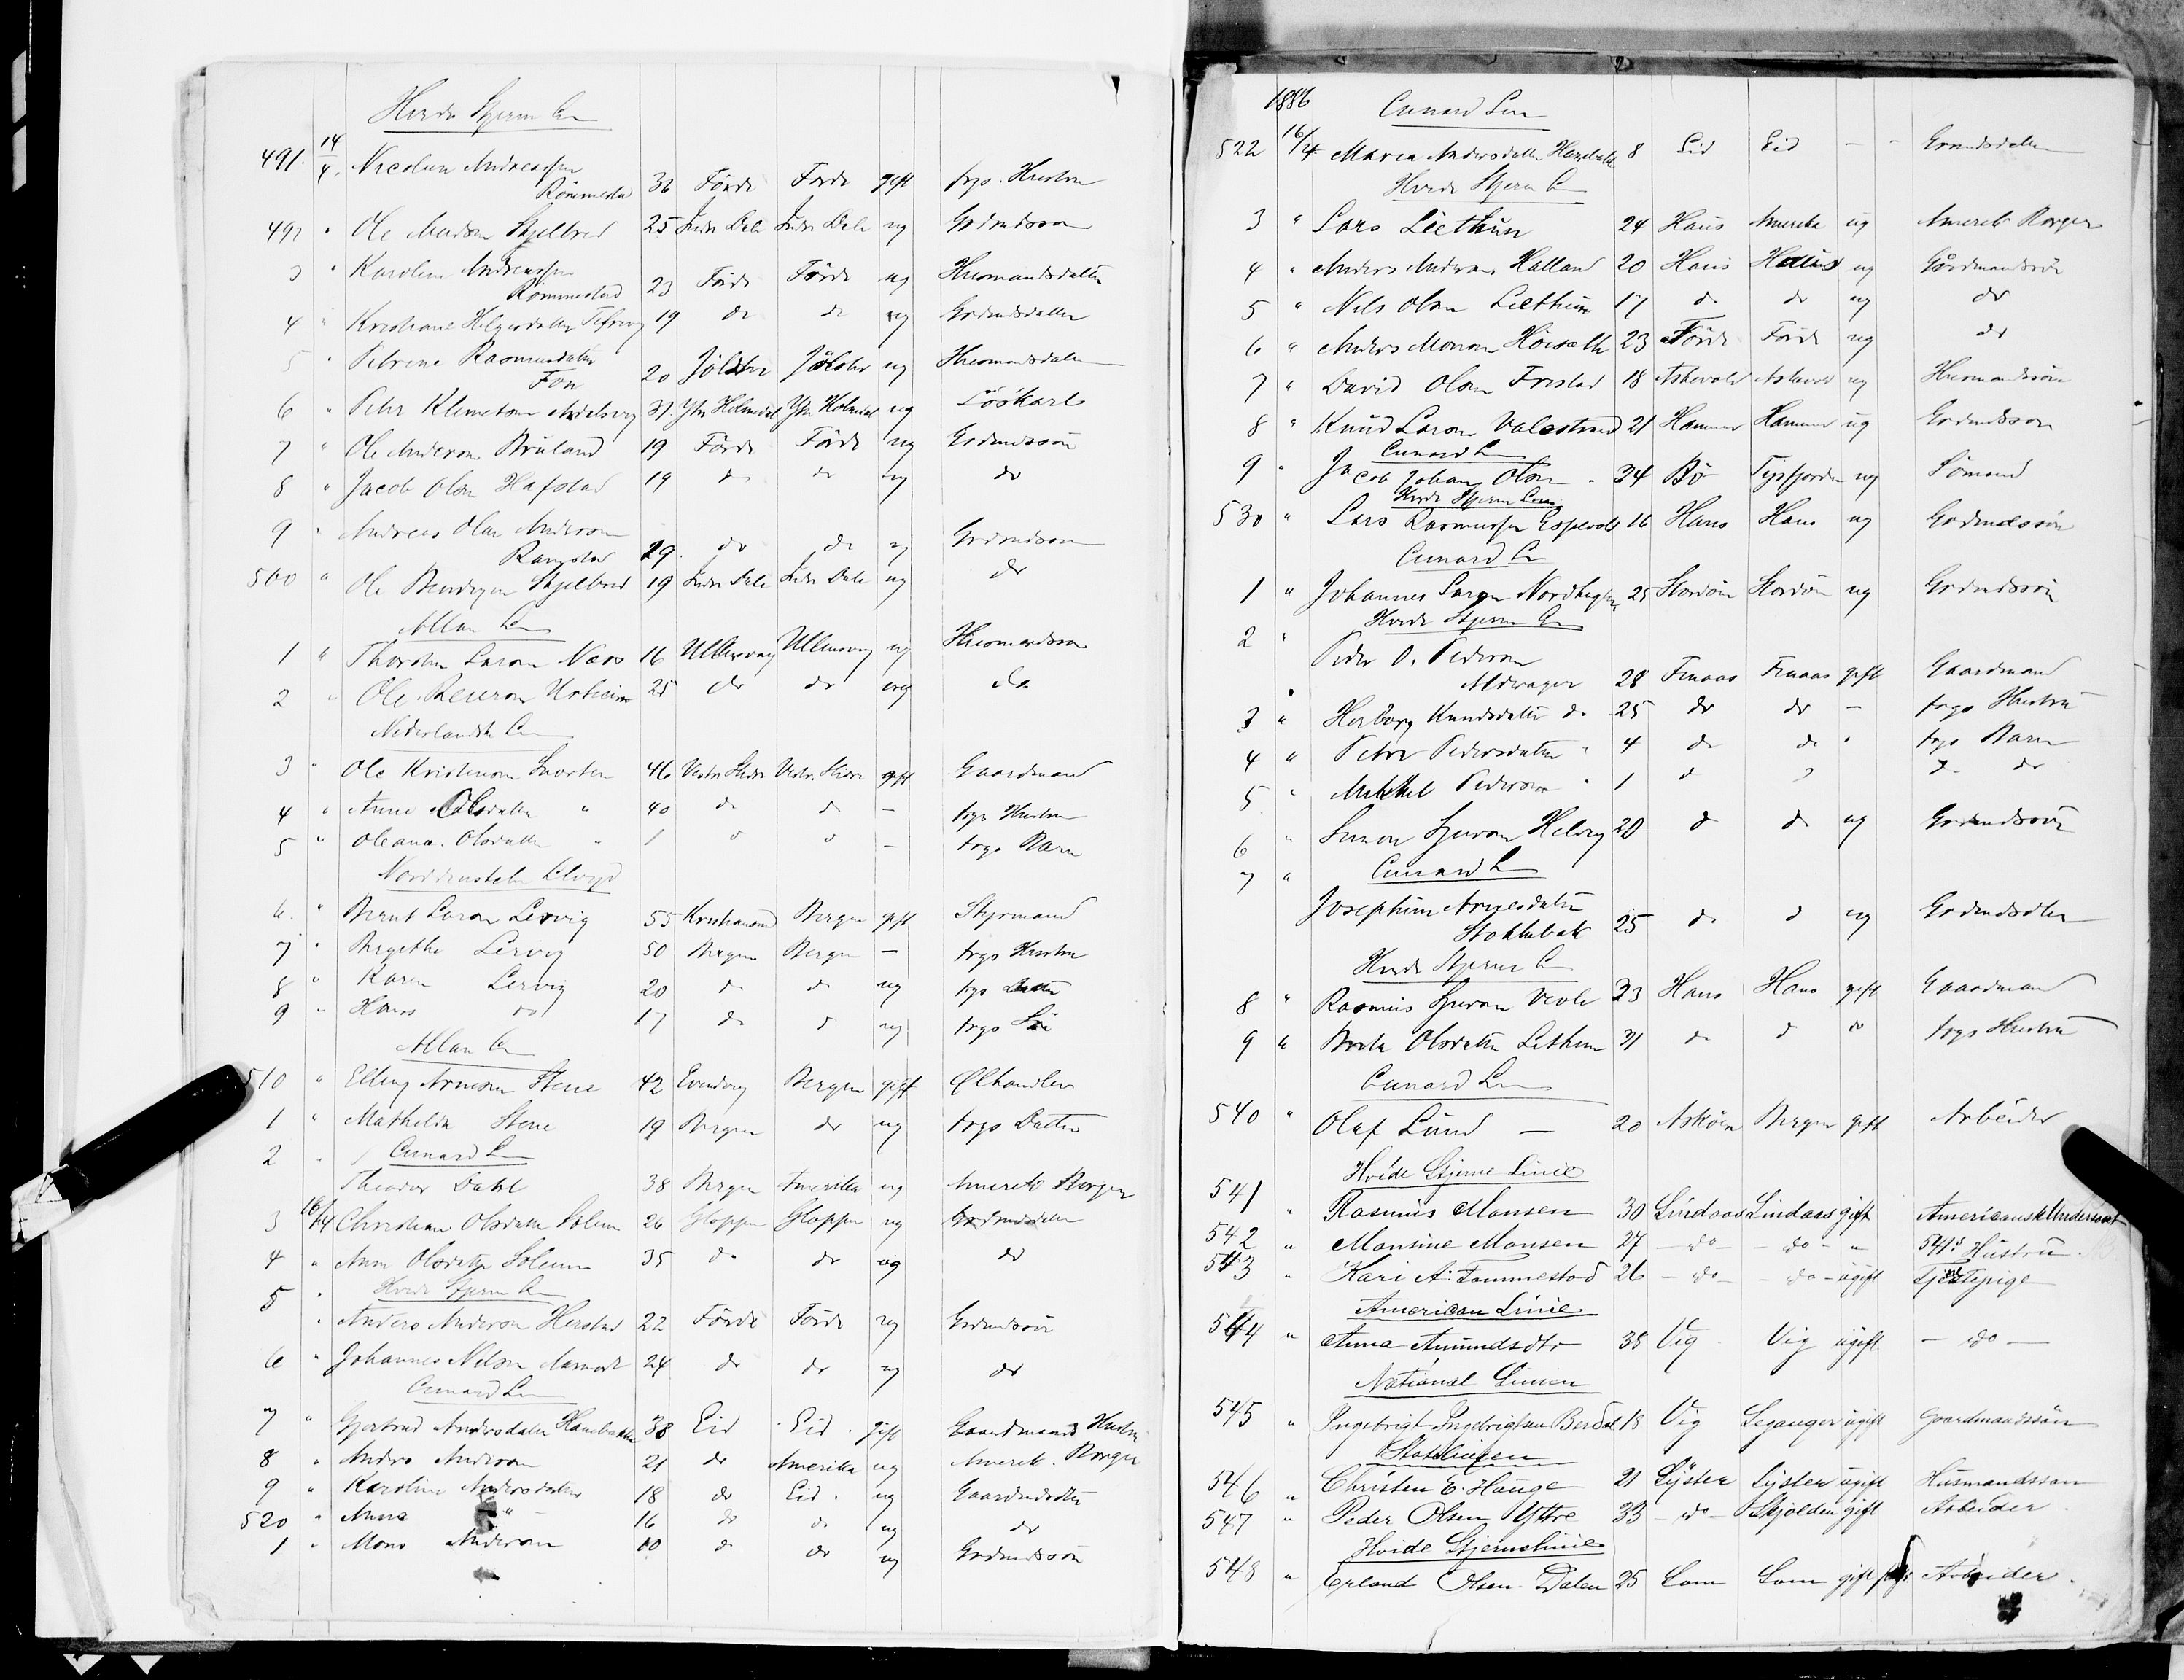 Hvide Stjerne L
491. 14/4. Nicoline Andreassen
Römmestad 36 Förde Förde gift frgs. Hustru
492 " Ole Madsen Skjelbred 25 Indre Dale Indre Dale ug Grdmdssøn
3 " Karoline Andreassen
Römmestad 23 Förde Förde ug Husmandsdatter
4 " Kristiane Helgesdatter 19 do do ug Grdmdsdatter
5 " Petrine Rasmusdatter
Fon 20 Jölster Jölster ug Husmandsdatter
6 " Peter Klemetsen 31 Ytre Holmedal Ytre Holmedal ug Löskarl
7 " Ole Anderson Bruland 19 Förde Förde ug Grdmdssøn
8 " Jacob Olsen Hafstad 19 do do ug do
9 " Andreas Olai Anderson
29. do do ug Grdmdssøn
500 " Ole Bendixen Skjelbred 19 Indre Dale Indre Dale ug do
Allan L
1 " Thorsten Larsen Næss 16 Ullensvang Ullensvang ug Husmandssøn
2 " Ole Urheim 25 do do ug do
Nederlandske L
3 " Ole Kristenson 46 Vestre Slidre Vestre Slidre gift Gaardmand
4 " Anne Olsdatter " 40 do do — frgs Hustru
5 " Oleana Olsdatter " 1 do do — frgs Barn
Norddeutscher Lloyd
6. " Bernt Larsen Lervig 55 Kristiansund Bergen gift Styrmand
7 " Birgithe Lervig 50 Bergen Bergen — frgs Hustru
8 " Karen Lervig 20 do do ug frgs Datter
9 " Hans do 17 do do ug frgs Sön
Allan L
510 " Elling Arneson Stene 42 Evindvig Bergen gift Ølhandler
1 " Mathilda Stene 19 Bergen do ug frgs Datter
2 " Cunard L
Theodor Dahl 38 Bergen Amerika ug Amerik Borger
3 16/4 Christiane Olsdatter Solem 26 Gloppen Gloppen ug Grdmdsdatter
4 " Anne Olsdatter Solem 35 do do ug do
5 " Hvide Stjerne L
Anders Anderson Herstad 22 Förde Förde ug Grdmdssøn
6 " Johannes Nilsen 24 do do ug do
Cunard L
7 " Gjertrud Andersdatter 38 Eid Eid gift Gaardmands Hustru
8 " Anders Anderson 21 do Amerika ug Amerik. Borger
9 " Karoline Andersdatter 18 do Eid ug Gaardmdsdtr
520 " Anna " 16 do do ug do
1 " Mons Anderson 10 do do ug Grdmdssøn
1886 Cunard Line
522 16/4 Maria Andersdatter 8 Eid Eid — — Grmdsdatter
Hvide Stjerne L
3 " Lars Liethun 24 Haus Amerika ug Amerik Borger
4 " Anders Andersen Halland 20 Haus Haus ug Gårdmandssön
5 " Nils Olsen Liethun 17 do do ug do
6 " Anders Monsen 23 Förde Förde ug do
7 " David Olsen 18 Askevold Askevold ug Husmandssön
8 " Knud Larsen Valestrand 21 Hammer Hammer ug Grdmdssøn
Cunard L
9 " Jacob Johan Olsen 34 Bö Tysfjorden ug Sömand
Hvide Stjerne Line
530 " Lars Rasmussen Espevold 16 Haus Haus ug Grdmdssøn
Cunard L
1 " Johannes Larsen 25 Stordöen Stordöen ug Grdmdssøn
Hvide Stjerne L
2 " Peder O. Pederson
28 Finaas Finaas gift Gaardmand
3 " Herborg Knudsdatter do 25 do do — frgs Hustru
4 " Petra Pedersdatter " 4 do do " frgs Barn
5 " Mikkel Pederson " 1 do do do do
6 " Simon 20 do do ug Grdmdssøn
7 " Cunard L
Josephine Arnesdatter
25 do do ug Grdmdsdtr
Hvide Stjerne L
8 " Rasmus 23 Haus Haus gift Gaardmand
9 " Brita Olsdatter Lethun 31 do do do frgs Hustru
Cunard L
540 " Olaf Lund — 20 Asköen Bergen gift Arbeider
Hvide Stjerne Linie
541 " Rasmus Monsen 30 Lindaas Lindaas gift Americansk Undersaat
542 " Monsine Monsen 27 — do — — do — " 541s Hustru
543 " Kari A. Fammestad 26 — do — — do — ugift Tjenstepige
American Linie
544 " Anna Amundsdtr 38 Vig Vig ugift — do —
National Linien
545 " Ingebrigt Ingebrigtsen Berdal 18 Vig Leganger ugift Gaardmandssön
Statslinien
546 " Christen E. Hauge 21 Lyster Lyster ugift Husmandssøn
547 " Peder Olsen Yttre 33 — do — Skjolden gift Arbeider
Hvide Stjernelinie
548 " Erland Olsen Dalen 25 Lom Lom gift Arbeider.